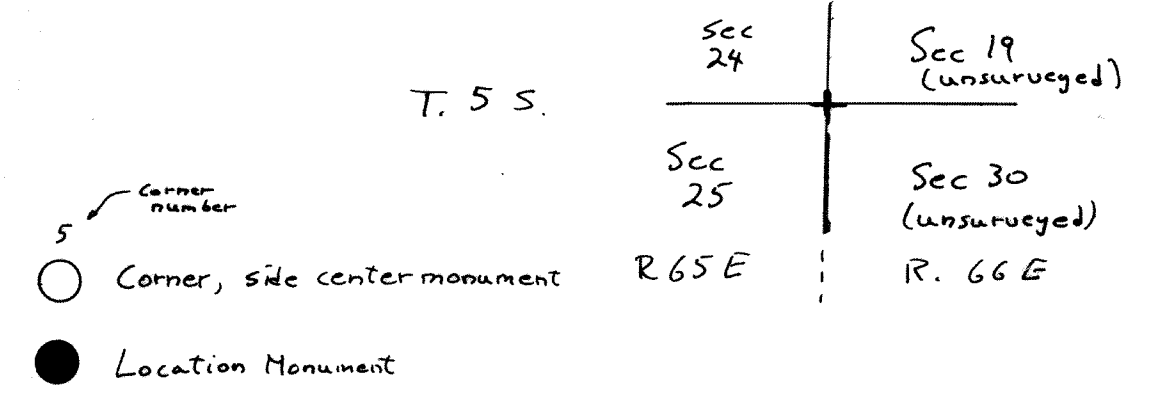 Sec
24
Sec 19
(unsurveyed)
T. 5 S.
Sec
25
Sec 30
(unsurveyed)
Corner
number
5
R 65 E
R. 66 E
Corner, side center monument
Location Monument